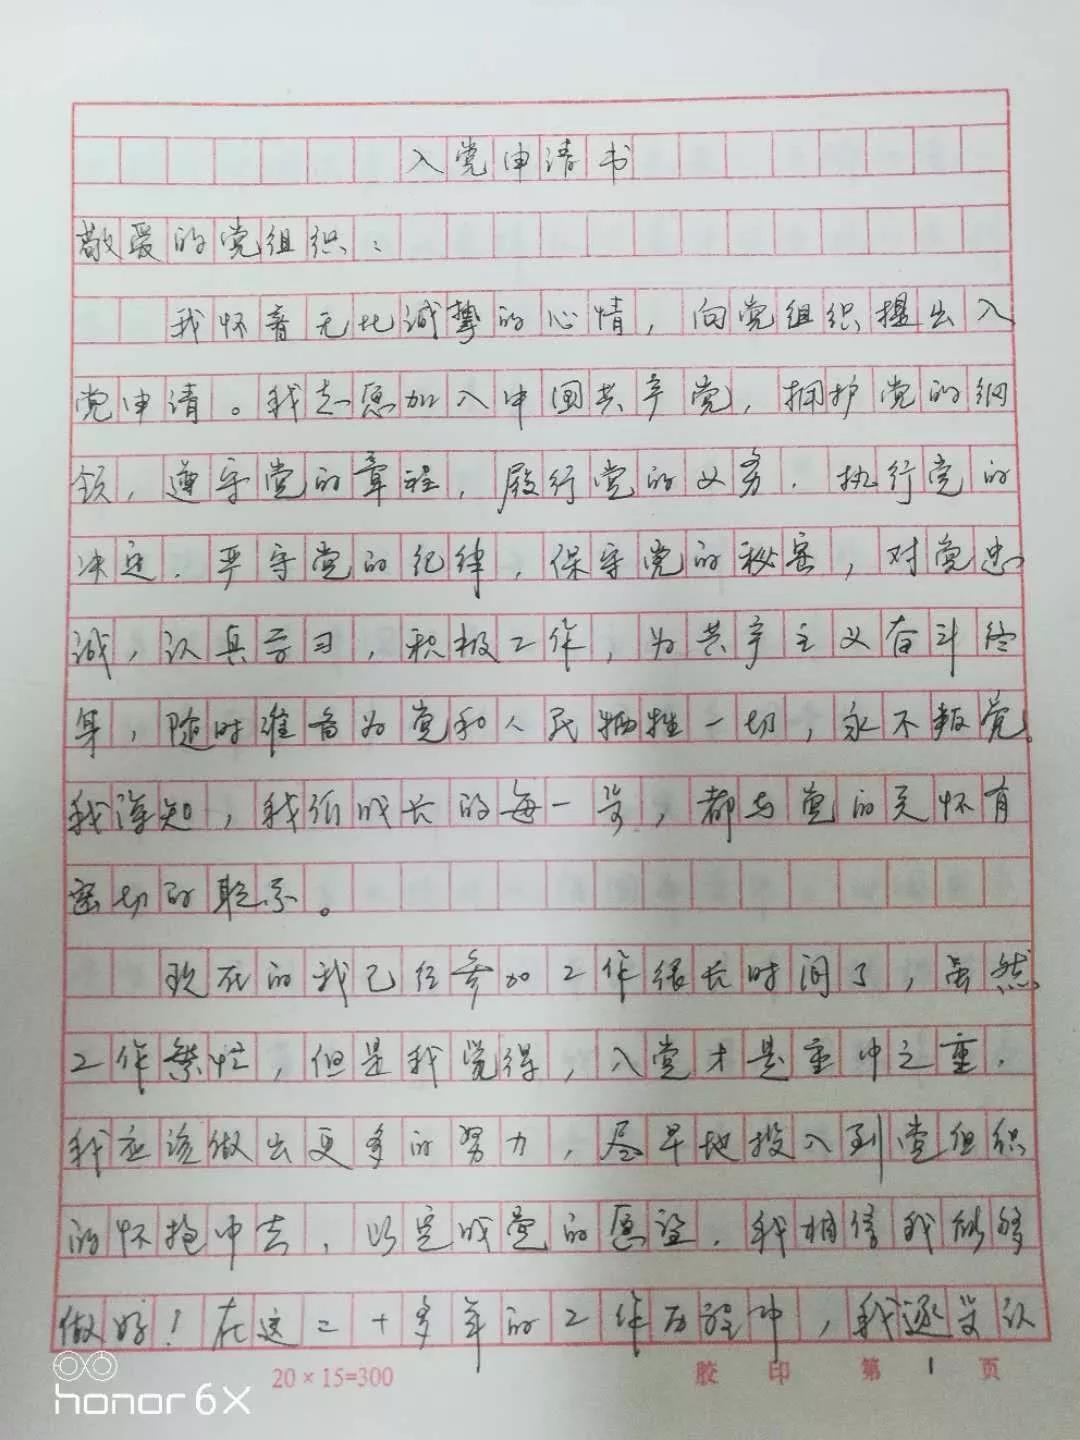 入党申请书
敬爱的党组织：
我怀着无比诚挚的心情，向党组织提出入
党申请。我志愿加入中国共产党，拥护党的纲
领，遵守党的章程，履行党的义务，执行党的
决定，严守党的纪律，保守党的秘密，对党忠
诚，认真学习，积极工作，为共产主义奋斗终
身，随时准备为党和人民牺牲一切，永不叛党。
我深知，我们成长的每一步，都与党的关怀有
密切的联系。
现在的我已经参加工作很长时间了，虽然
工作繁忙，但是我觉得，入党才是重中之重，
我应该做出更多的努力，尽早地投入到党组织
的怀抱中去，以完成党的愿望，我相信我能够
做好！在这二十多年的工作历程中，我逐步认
20×15=300 胶印 第1页
honor 6X